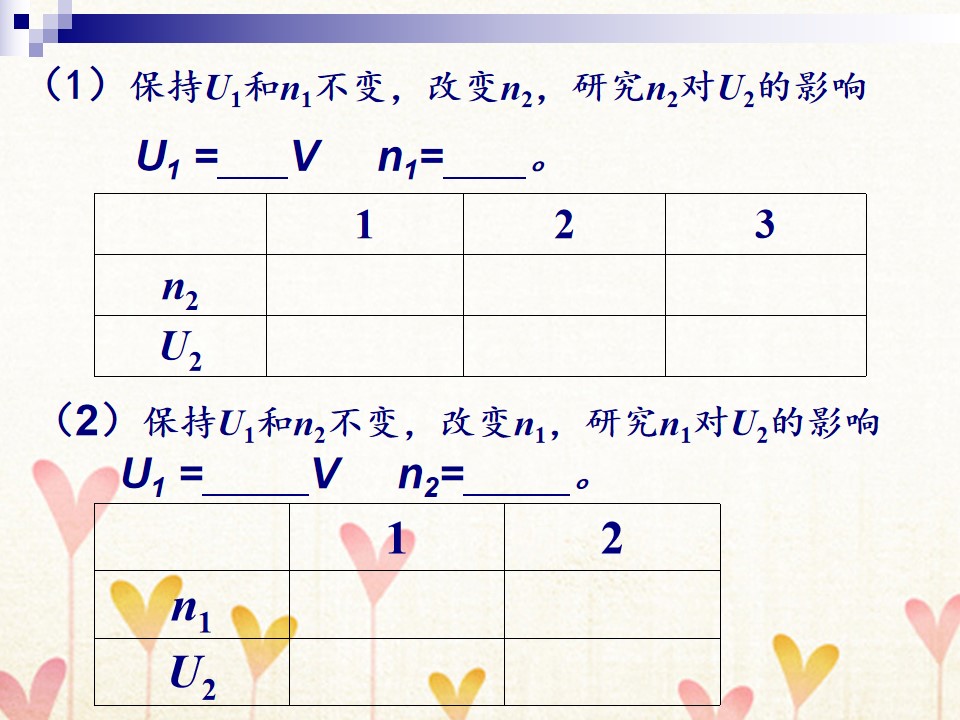 （1）保持U₁和n₁不变，改变n₂，研究n₂对U₂的影响
U₁ =___V n₁=____。
1 2 3
n₂
U₂
（2）保持U₁和n₂不变，改变n₁，研究n₁对U₂的影响
U₁ =_____V n₂=_____。
1 2
n₁
U₂